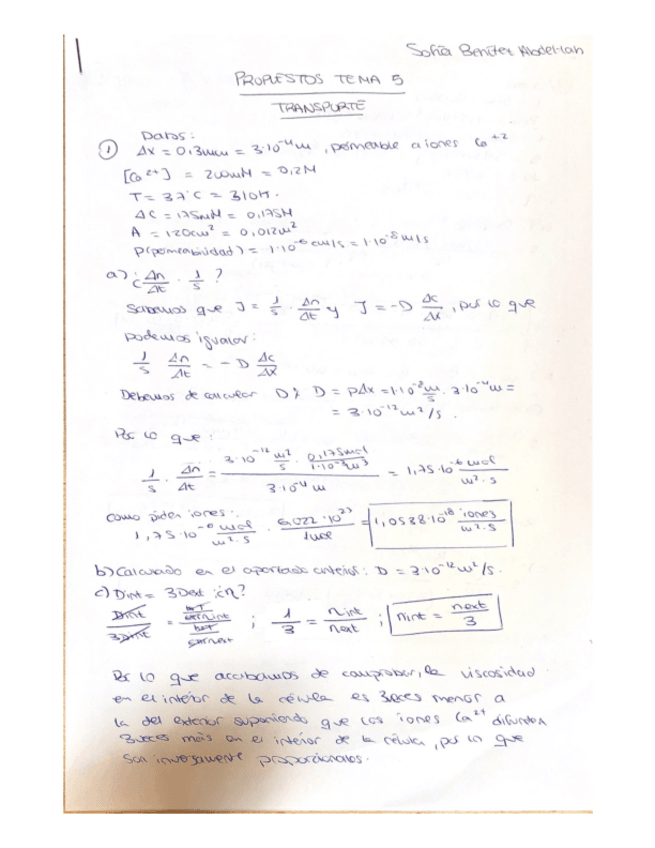 Sofía Benítez Abdel-lah
PROPUESTOS TEMA 5
TRANSPORTE
① Datos:
Δx = 0,3mm = 3·10⁻⁴m, permeable a iones Ca⁺²
[Ca²⁺] = 200mM = 0,2M
T = 37ºC = 310K.
ΔC = 175mM = 0,175M
A = 120cm² = 0,012m²
P(permeabilidad) = 1·10⁻⁶ cm/s = 1·10⁻⁸ m/s
a) ¿ Δn/Δt · 1/s ?
Sabemos que J = 1/s · Δn/Δt y J = -D Δc/Δx, por lo que
podemos igualar:
1/s Δn/Δt = -D Δc/Δx
Debemos de calcular D; D = PΔx = 1·10⁻⁸ m/s · 3·10⁻⁴m =
= 3·10⁻¹² m²/s.
Por lo que:
1/s · Δn/Δt = (3·10⁻¹² m²/s · 0,175mol/1·10⁻³m³)/(3·10⁻⁴ m) = 1,75·10⁻⁶ mol/m²·s
como piden iones:
1,75·10⁻⁶ mol/m²·s · 6,022·10²³/1mol = 1,0538·10¹⁸ iones/m²·s
b) Calculado en el apartado anterior: D = 3·10⁻¹² m²/s.
c) Dint = 3Dext ¿n?
Dint/3Dint = ; 1/3 = nint/next ; nint = next/3
Por lo que acabamos de comprobar, la viscosidad
en el interior de la célula es 3 veces menor a
la del exterior suponiendo que los iones Ca²⁺ difunden
3 veces más en el interior de la célula, por lo que
son inversamente proporcionales.